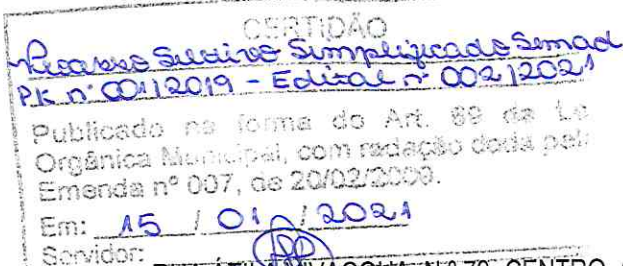 CERTIDÃO
Processo Seletivo Simplificado Semad
P.K n° 001/2019 - Edital n° 002/2021
Publicado na forma do Art. 89 da Le
Orgânica Municipal, com redação dada pel
Emenda nº 007, de 20/02/2009.
Em: 15 / 01 / 2021
Servidor:
CENTRO